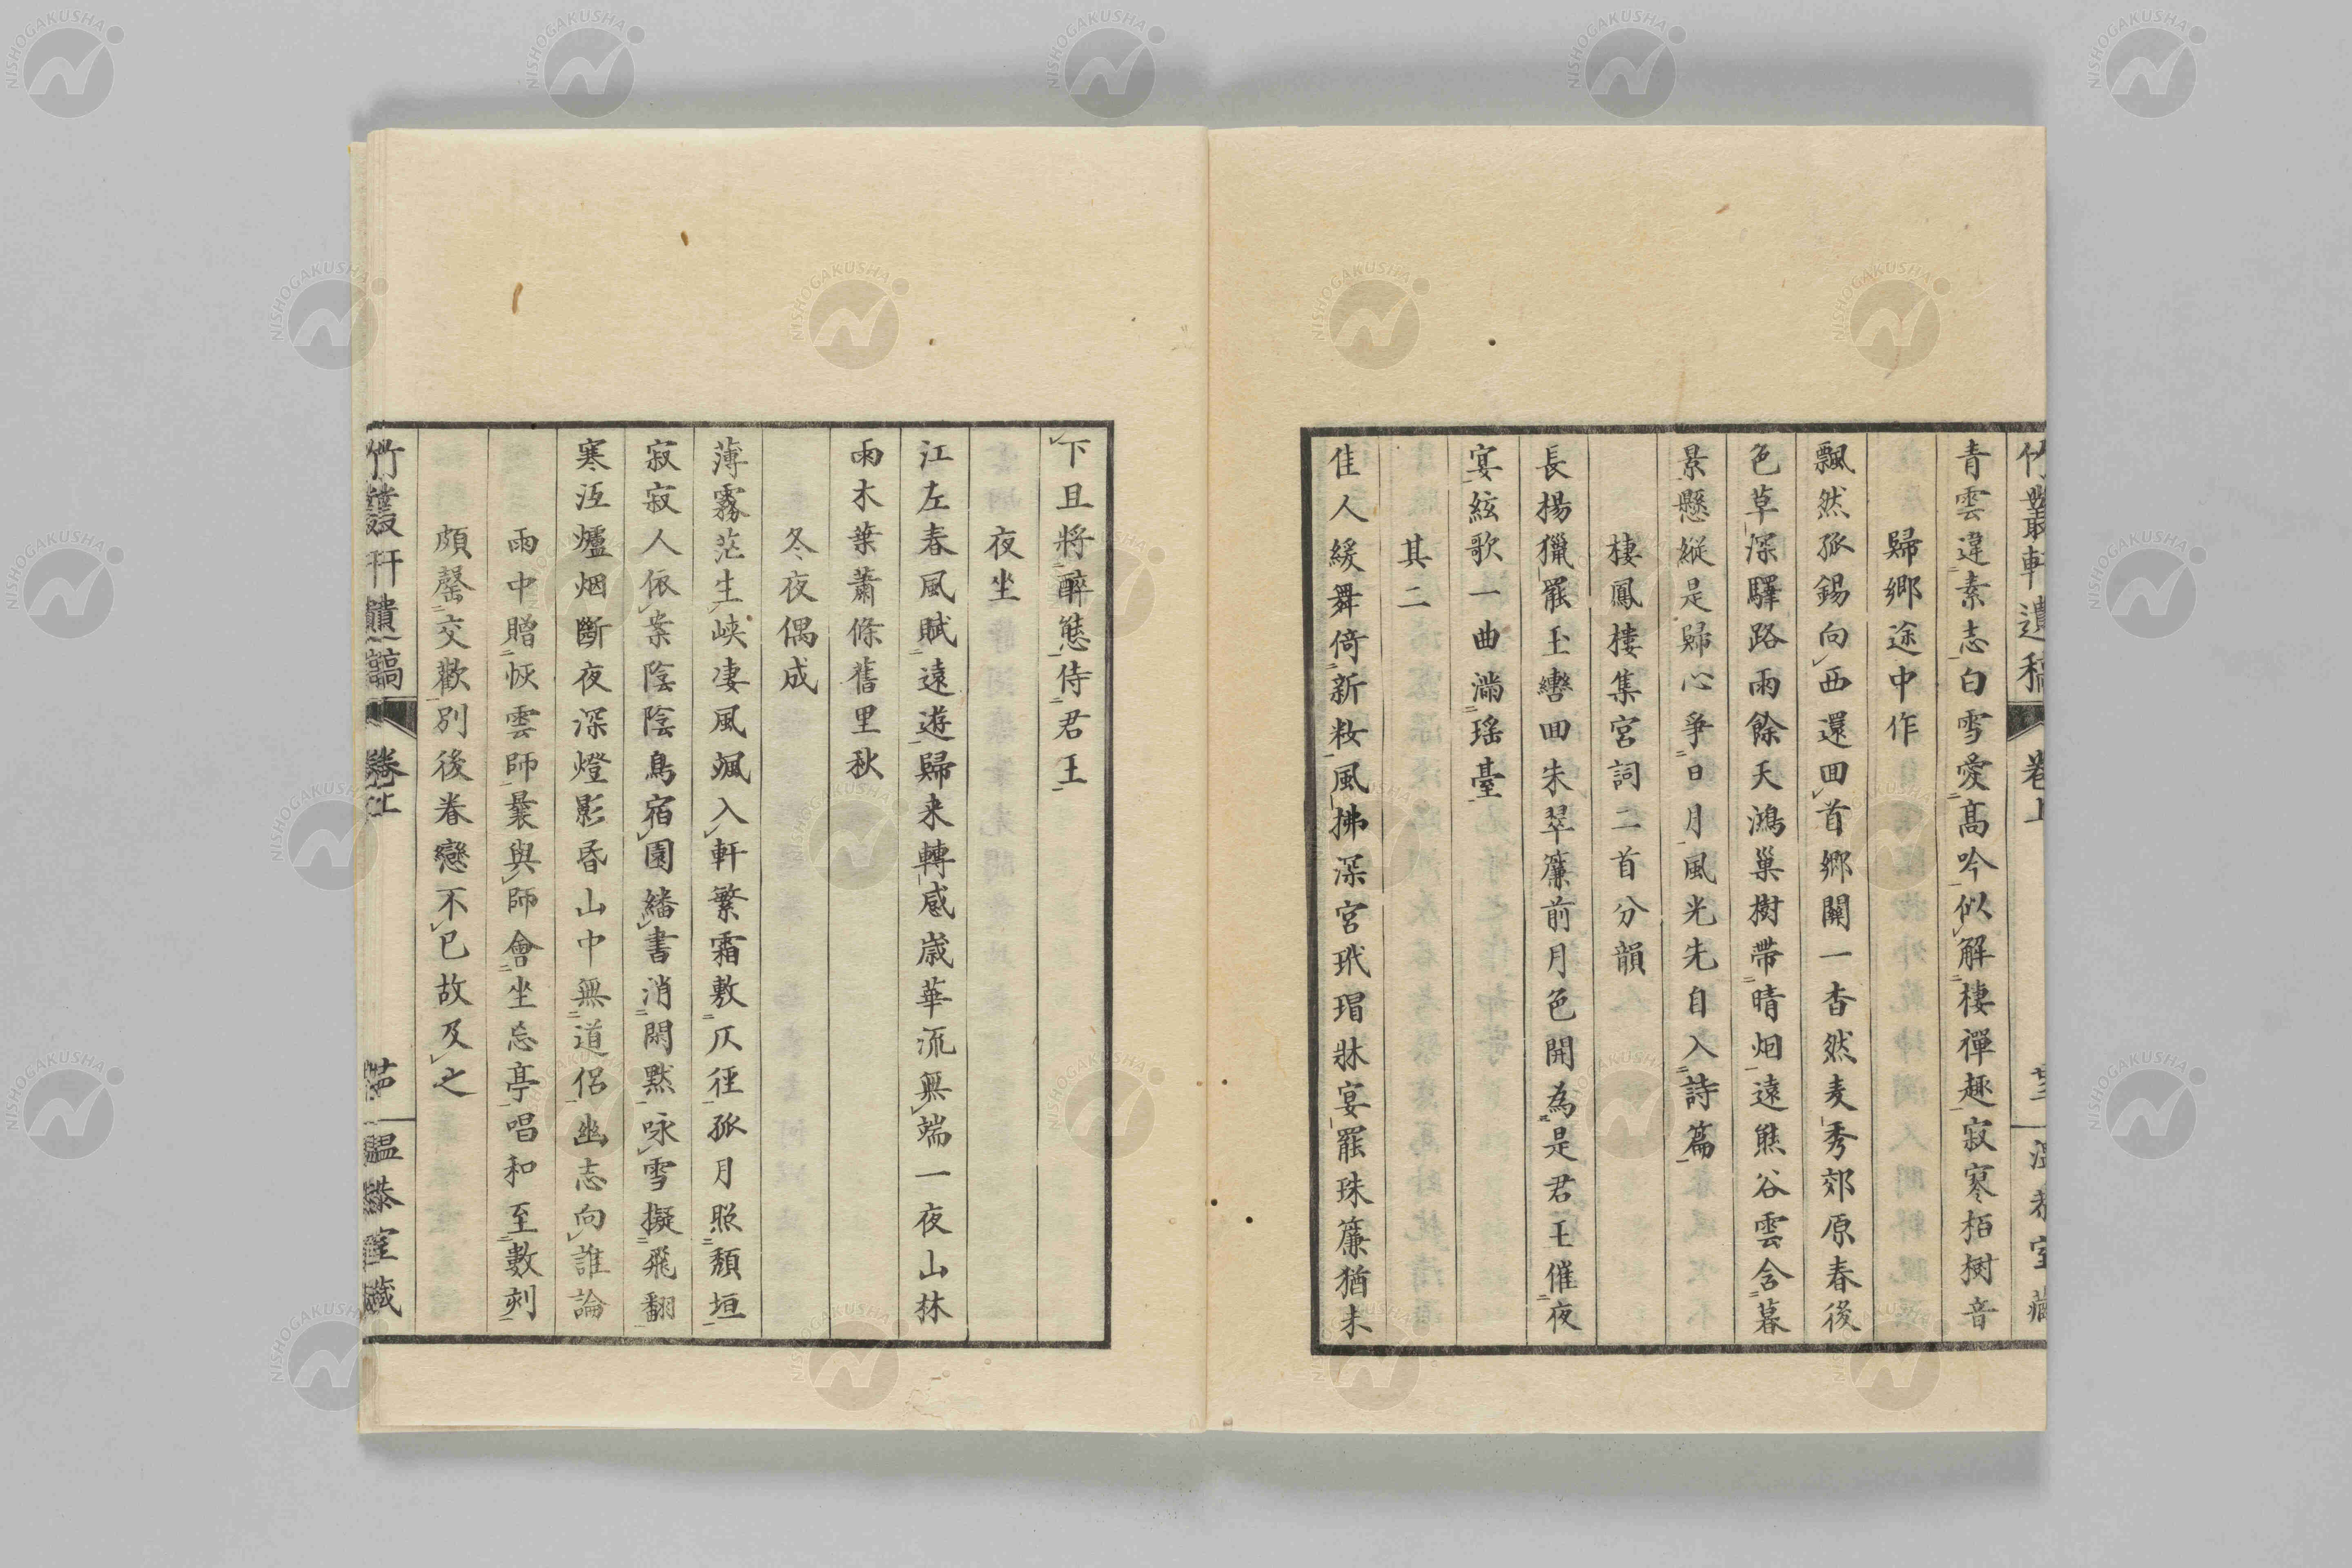 竹叢軒遺稿 卷上 溫恭室藏
青雲違素志白雪愛高吟似解棲禪趣寂寒栢樹音
歸鄉途中作
飄然孤錫向西還回首鄉關一杳然麦秀郊原春後
色草深驛路雨餘天鴻巢樹帶晴烟遠熊谷雲含暮
景懸縱是歸心爭日月風光先自入詩篇
棲鳳樓集宮詞二首分韻
長楊獵罷玉轡回朱翠簾前月色開為是君王催夜
宴絃歌一曲滿瑤臺
其二
佳人緩舞倚新妝風拂深宮玳瑁牀宴罷珠簾猶未
下且將醉態侍君王
夜坐
江左春風賦遠遊歸来轉感歲華流無端一夜山林
雨木葉蕭條舊里秋
冬夜偶成
薄霧茫生峽凄風颯入軒繁霜敷仄徑孤月照頽垣
寂寂人依案陰陰鳥宿園繙書消閑黙咏雪擬飛翻
寒沍爐烟斷夜深燈影昏山中無道侶幽志向誰論
雨中贈恢雲師曩與師會坐忘亭唱和至數刻
頗罄交歡別後眷戀不已故及之
竹叢軒遺稿 卷上 溫恭室藏
NISHOGAKUSHA